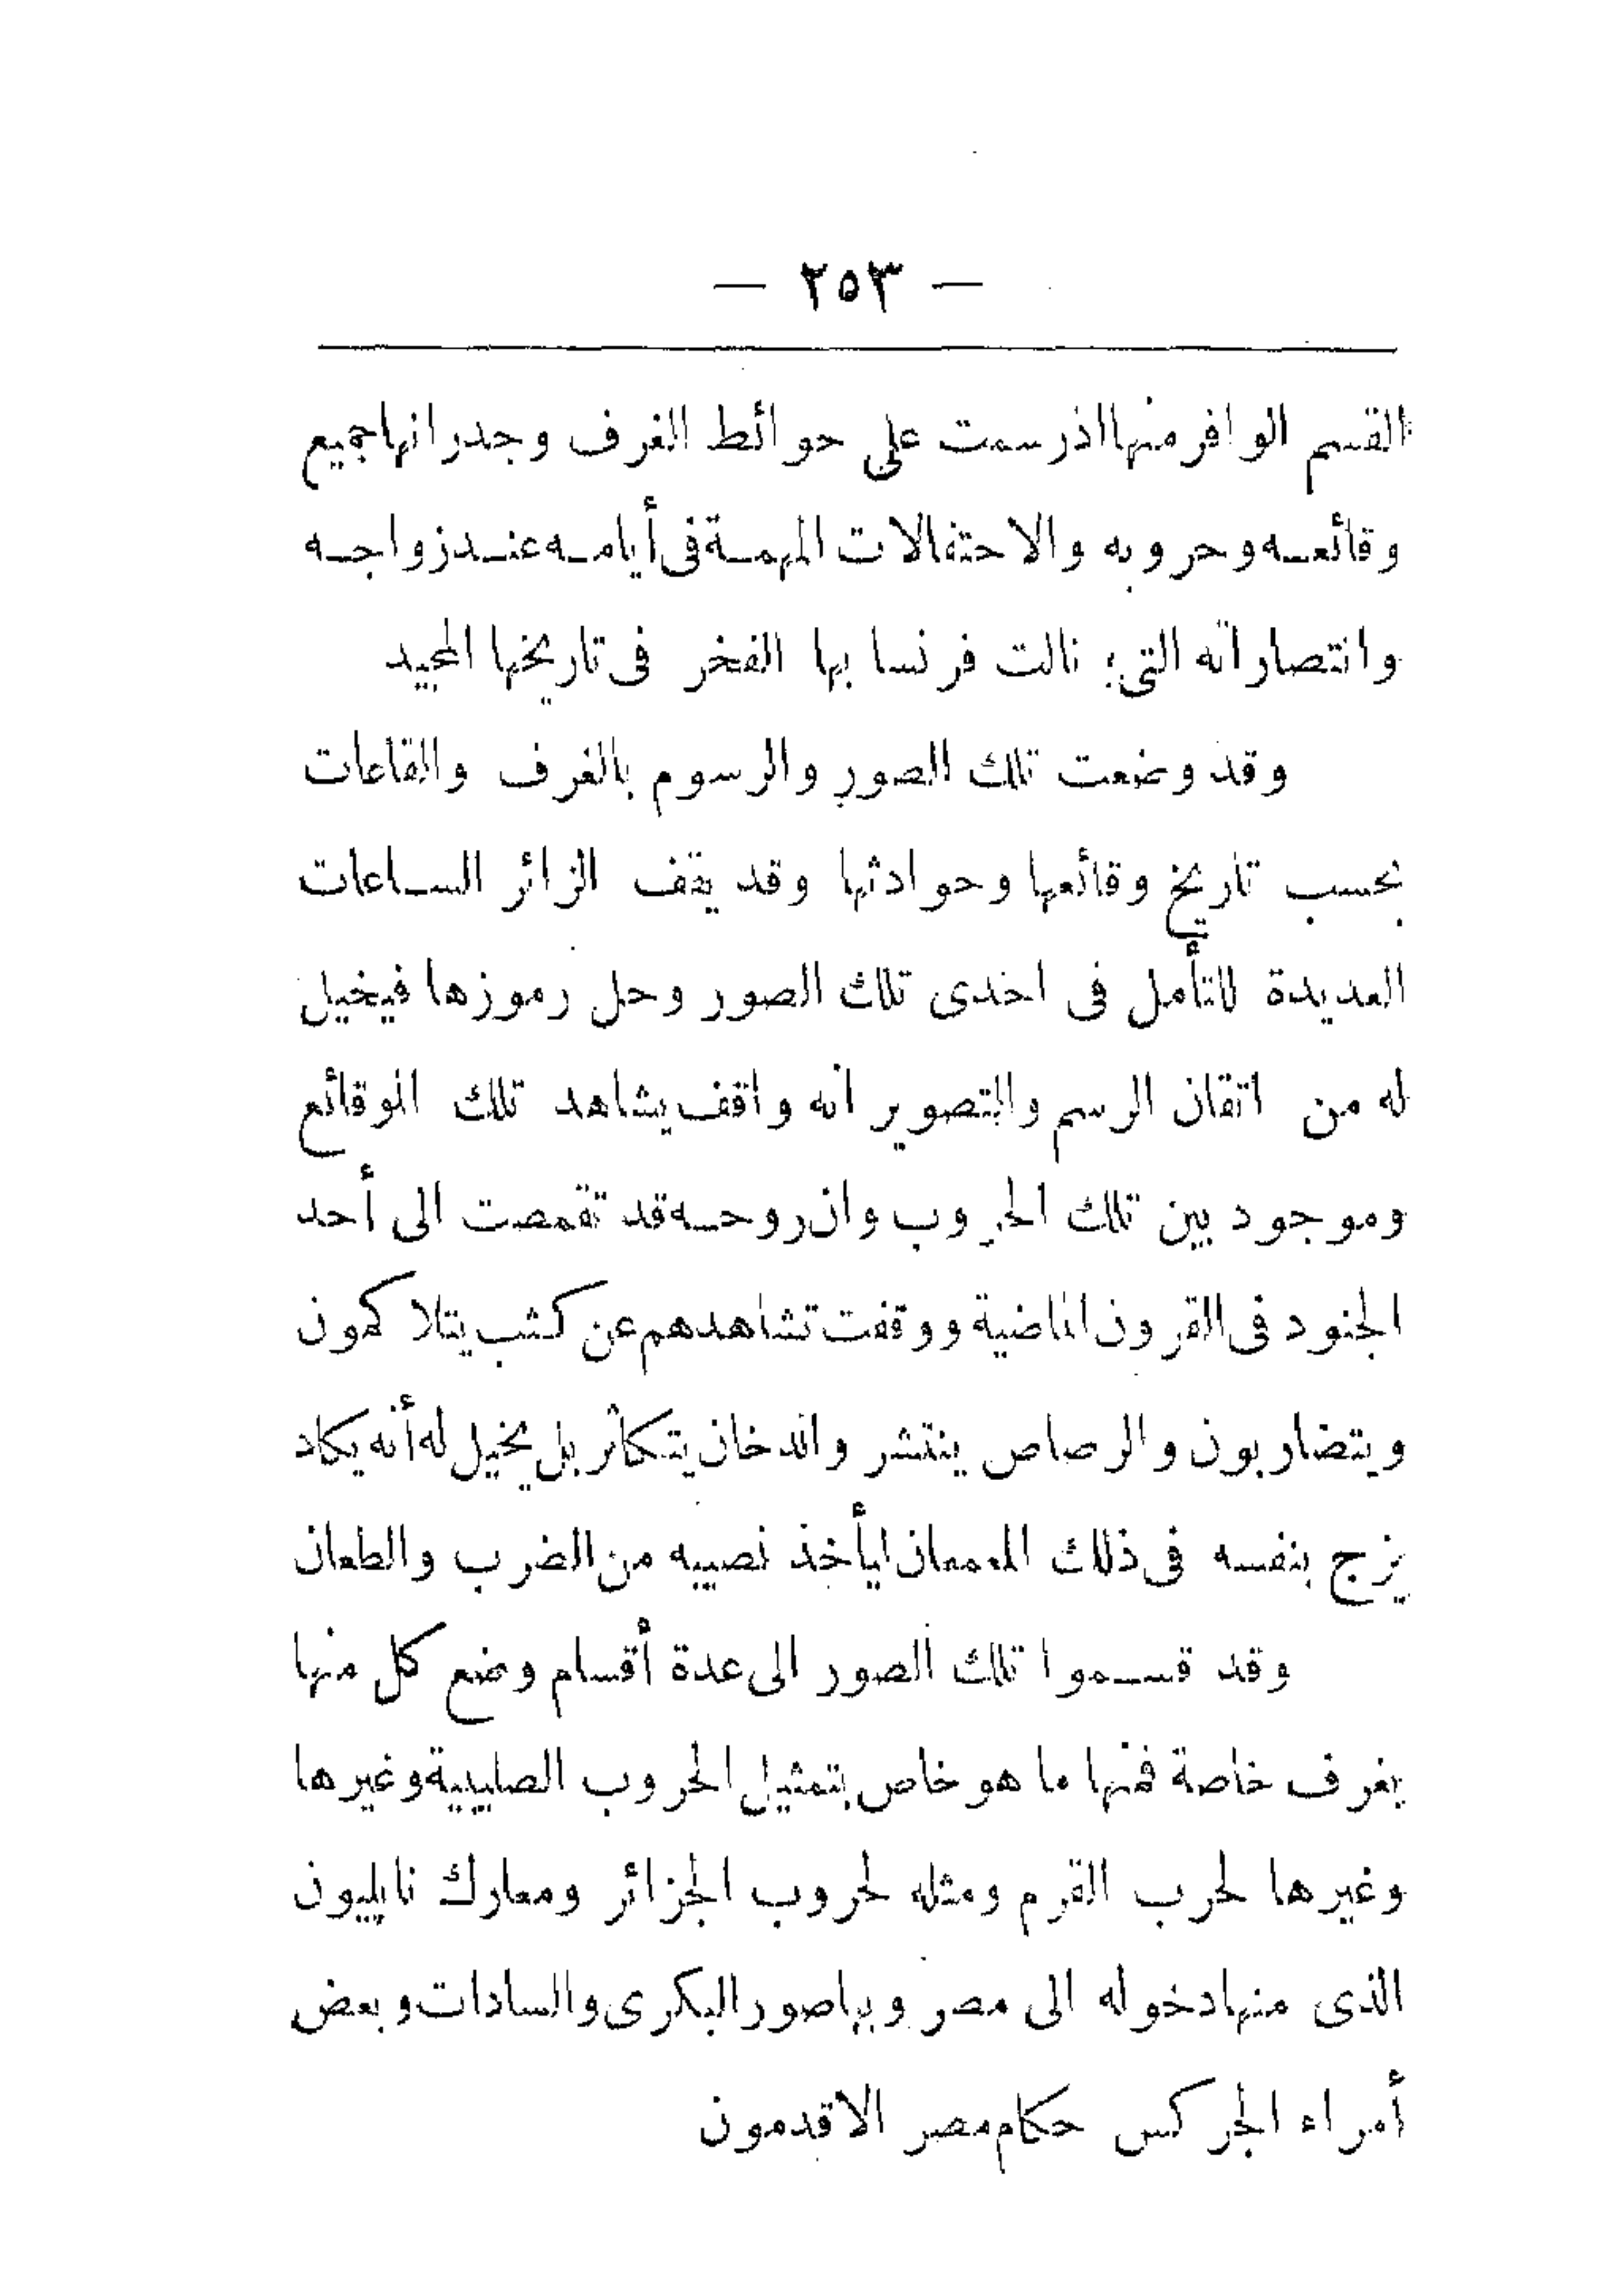 — ٢٥٣ —
القسم الوافر منها اذ رسمت على حوائط الغرف وجدرانها جميع
وقائعه وحروبه والاحتفالات المهمة فى أيامه عند زواجه
وانتصاراته التى نالت فرنسا بها الفخر فى تاريخها المجيد
وقد وضعت تلك الصور والرسوم بالغرف والقاعات
بحسب تاريخ وقائعها وحوادثها وقد يقف الزائر الساعات
العديدة للتأمل فى احدى تلك الصور وحل رموزها فيخيل
له من اتقان الرسم والتصوير انه واقف يشاهد تلك الوقائع
وموجود بين تلك الحروب وان روحه قد تقمصت الى أحد
الجنود فى القرون الماضية ووقفت تشاهدهم عن كشب يتلاكمون
ويتضاربون والرصاص ينتشر والدخان يتكاثر بل يخيل له أنه يكاد
يزج بنفسه فى ذلك المعمعان ليأخذ نصيبه من الضرب والطعان
وقد قسموا تلك الصور الى عدة أقسام وضع كل منها
بغرف خاصة فمنها ما هو خاص بتمثيل الحروب الصليبية وغيرها
وغيرها لحرب القرم ومثله لحروب الجزائر ومعارك نابليون
الذى منها دخوله الى مصر وبها صور البكرى والسادات وبعض
أمراء الجركس حكام مصر الاقدمون